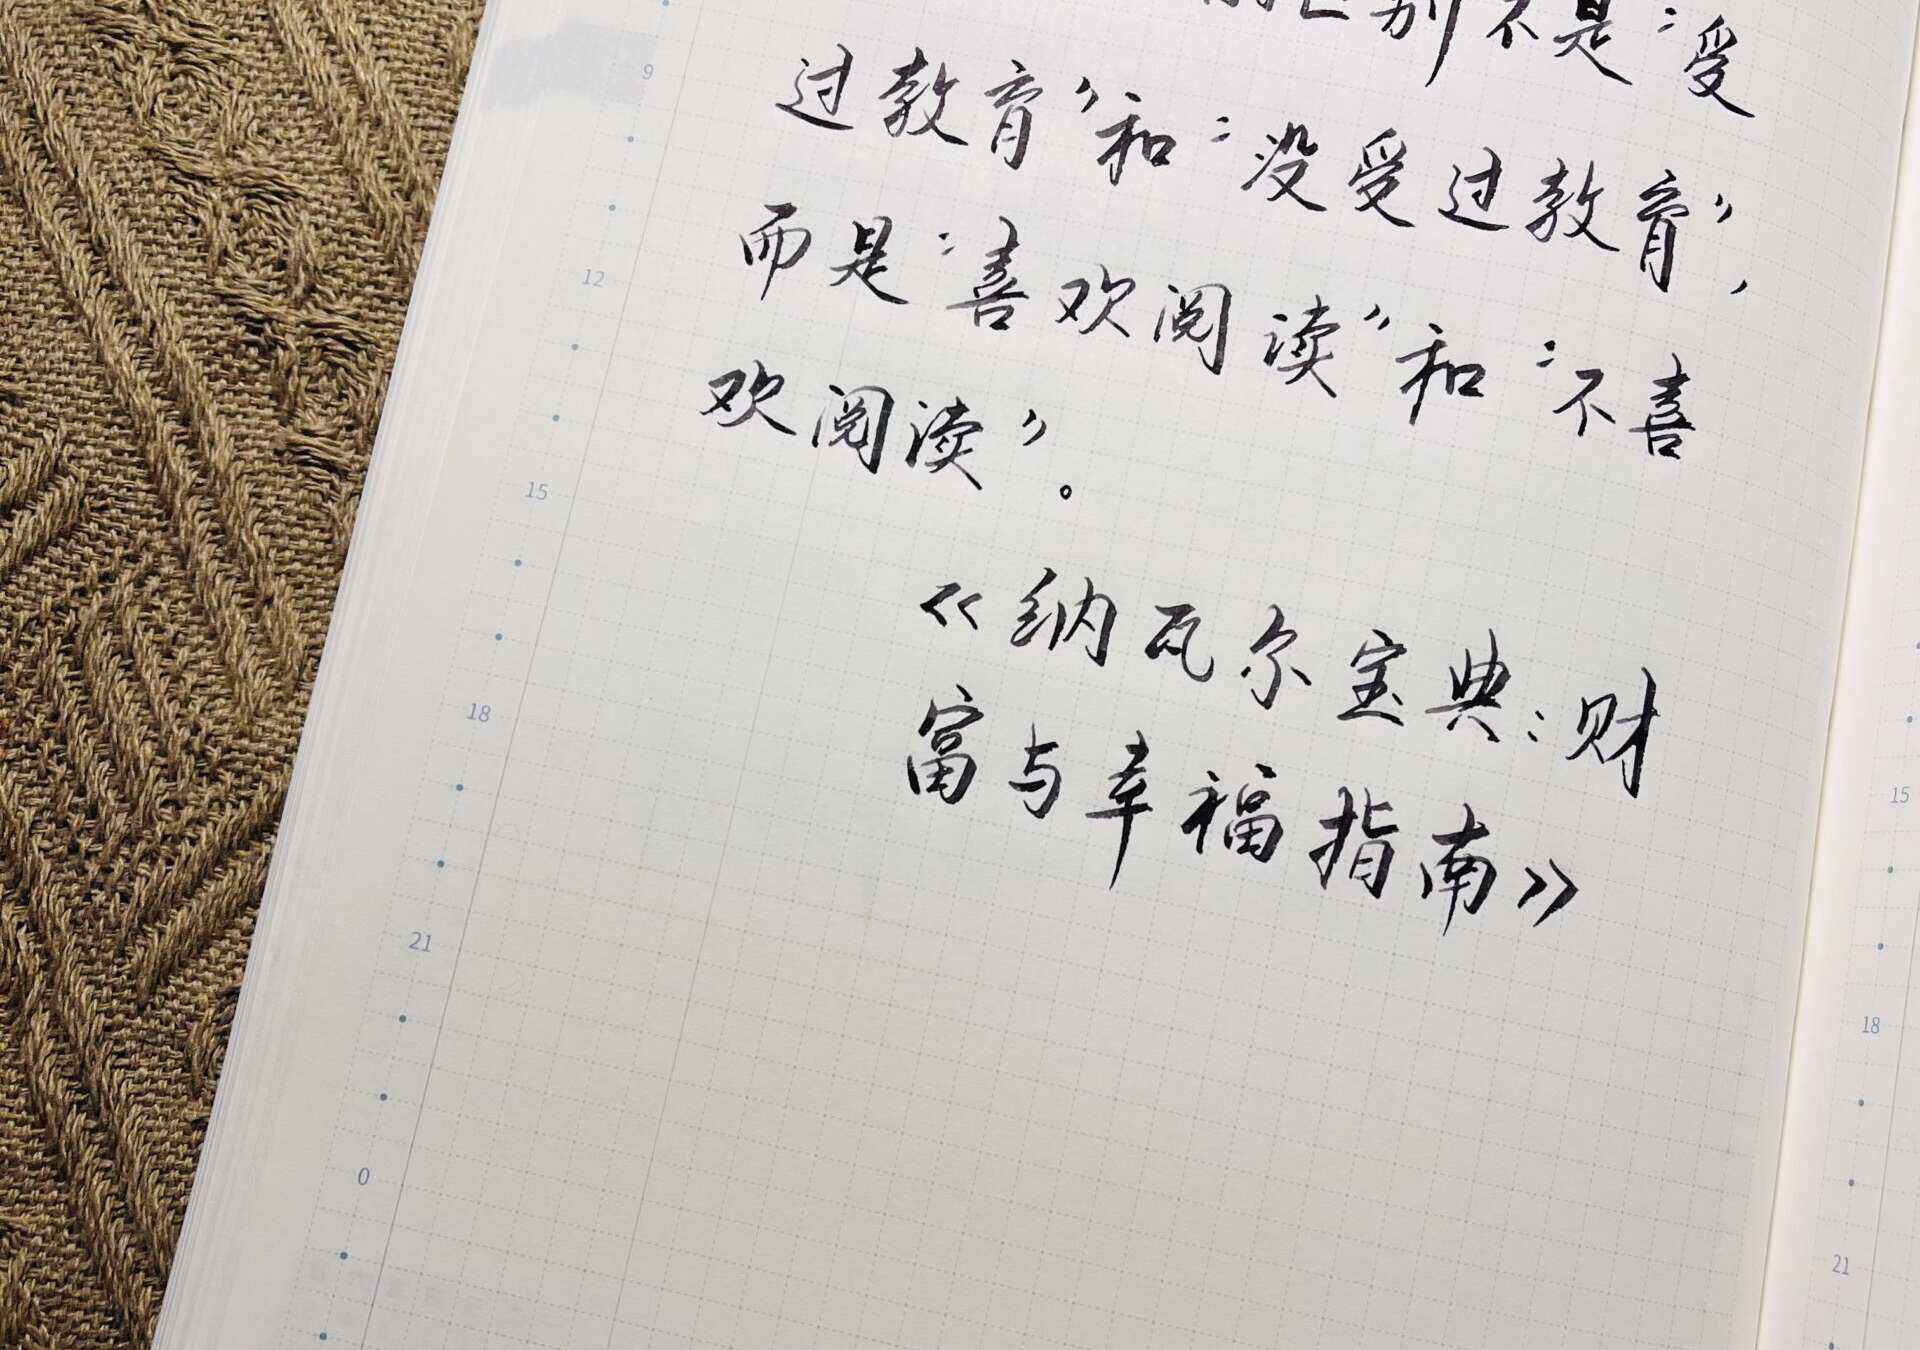 区别不是“受
过教育”和“没受过教育”，
而是“喜欢阅读”和“不喜
欢阅读”。
《纳瓦尔宝典：财
富与幸福指南》
9
12
15
18
21
0
15
18
21